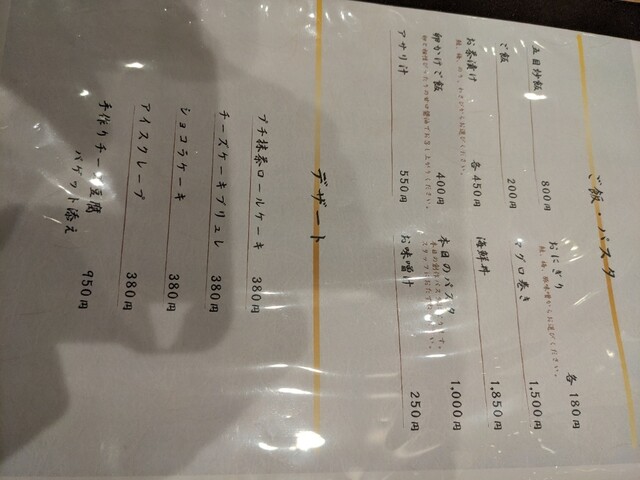 ご飯・パスタ
五目炒飯 800円
ご飯 200円
お茶漬け 各450円
鮭、梅、のり、わさびからお選びください。
卵かけご飯 400円
卵と相性ぴったりの甘口醤油でお召し上がりください。
アサリ汁 550円
おにぎり 各180円
鮭、梅、豚味噌からお選びください。
マグロ巻き 1,500円
海鮮丼 1,850円
本日のパスタ 1,000円
スタッフに
お味噌汁 250円
デザート
プチ抹茶ロールケーキ 380円
チーズケーキブリュレ 380円
ショコラケーキ 380円
アイスクレープ 380円
手作りチーズ豆腐
バゲット添え 950円